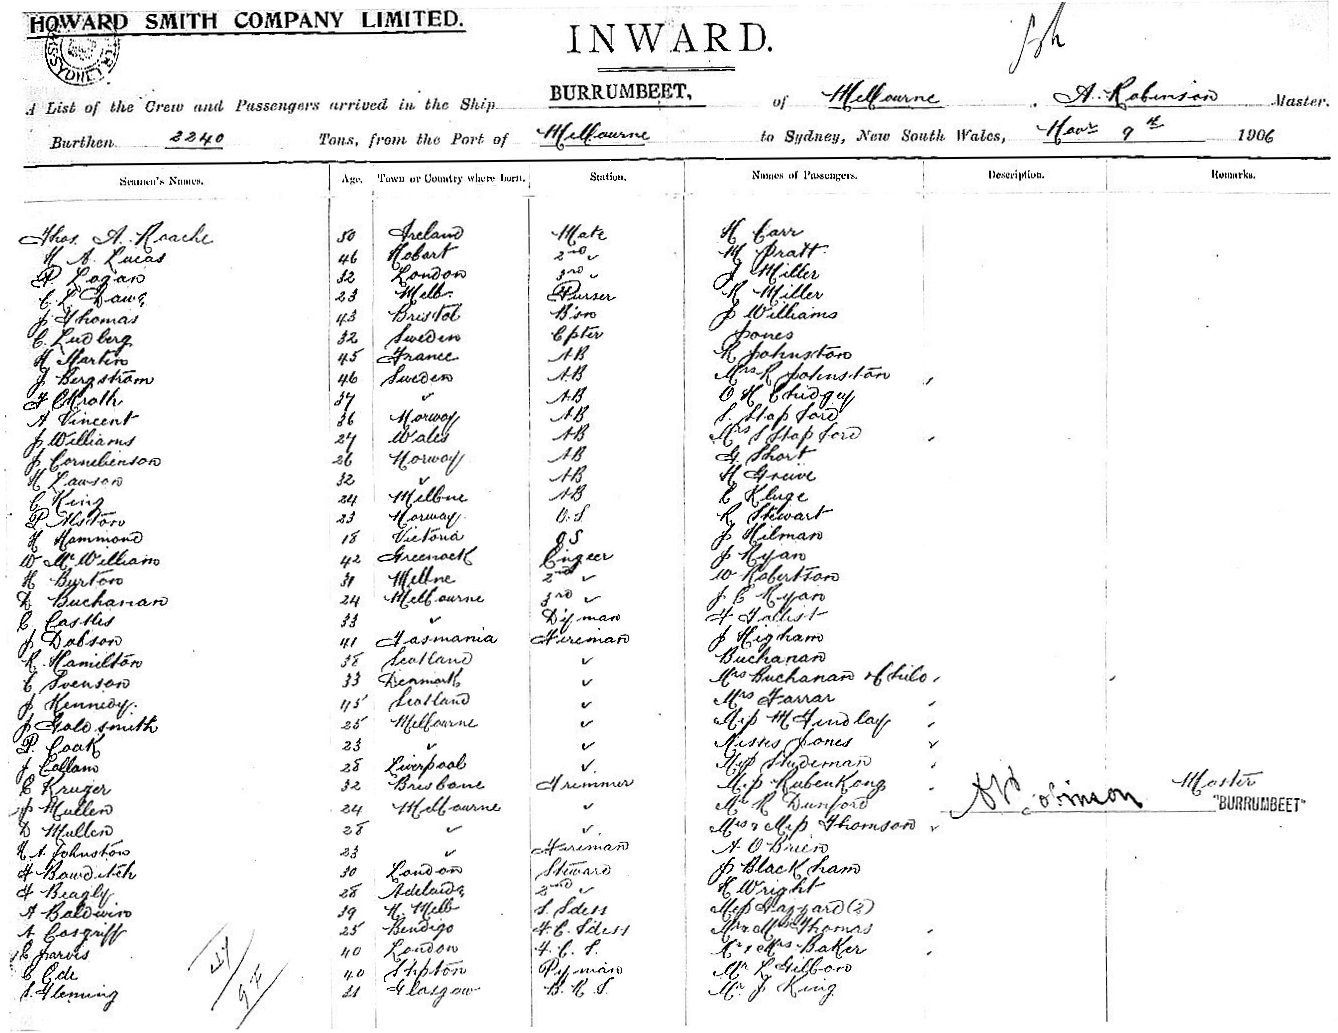 HOWARD SMITH COMPANY LIMITED.
INWARD.
A List of the Crew and Passengers arrived in the Ship BURRUMBEET, of Melbourne, A. Robinson Master.
Burthen 2240 Tons, from the Port of Melbourne to Sydney, New South Wales, Novr 9th 1906
Seamen's Names. Age. Town or Country where born. Station. Names of Passengers. Description. Remarks.
Thos. A. Roache 50 Ireland Mate H Carr
H A Lucas 46 Hobart 2nd ✓ M Pratt
P Logan 32 London 3rd ✓ J Miller
C L Dawe 23 Melb. Purser R Miller
J Thomas 43 Bristol B'sn J Williams
C. Ludberg 32 Sweden Cpter Jones
H Martin 45 France AB R Johnston
J Bergstrom 46 Sweden AB Mrs R Johnston
37 ✓ AB O H Chidgey
A Vincent 36 Norway AB S. Stapford
J Williams 27 Wales AB Mrs S Stapford
J Cornelienson 26 Norway AB G Short
H Lawson 32 ✓ AB H Greive
C King 24 Melbne AB C Kluge
P Alston 23 Norway O.S R Stewart
H Hammond 18 Victoria OS J Hilman
W McWilliam 42 Greenock Engeer J Ryan
H Burton 31 Melbne 2nd ✓ W Robertson
D Buchanan 24 Melbourne 3rd ✓ J C Ryan
C Castles 33 ✓ Dkyman F
J Dobson 41 Tasmania Fireman J Higham
R. Hamilton 38 Scotland ✓ Buchanan
C Svenson 33 Denmark ✓ Mrs Buchanan
J Kennedy. 45 Scotland ✓ Mrs Farrar
J Goldsmith 25 Melbourne ✓ Miss M Findlay
P. Cook 23 ✓ ✓ Misses Jones
J Callam 28 Liverpool ✓ Miss Studeman
C Kruger 32 Brisbane Trimmer Miss
J Mullen 24 Melbourne ✓ Mr R Dunford
A Robinson Master "BURRUMBEET"
D Mullen 28 ✓ ✓ Mrs & Miss Thomson
H A Johnston 23 ✓ Fireman A O'Brien
F Bowditch 30 London Steward J Blackham
F Beagly 28 Adelaide 2nd ✓ H Wright
A Baldwin 39 N. Melb S. Sdess Miss Gazzard (2)
A Cosgriff 25 Bendigo F. C. Sdess Mr & Mrs Thomas
C Jarvis 40 London F. C. S. Mr & Mrs Baker
C Ede 40 Shpton Pyman Mr L Gibbon
S. Fleming 21 Glasgow B. R. S. Mr J King